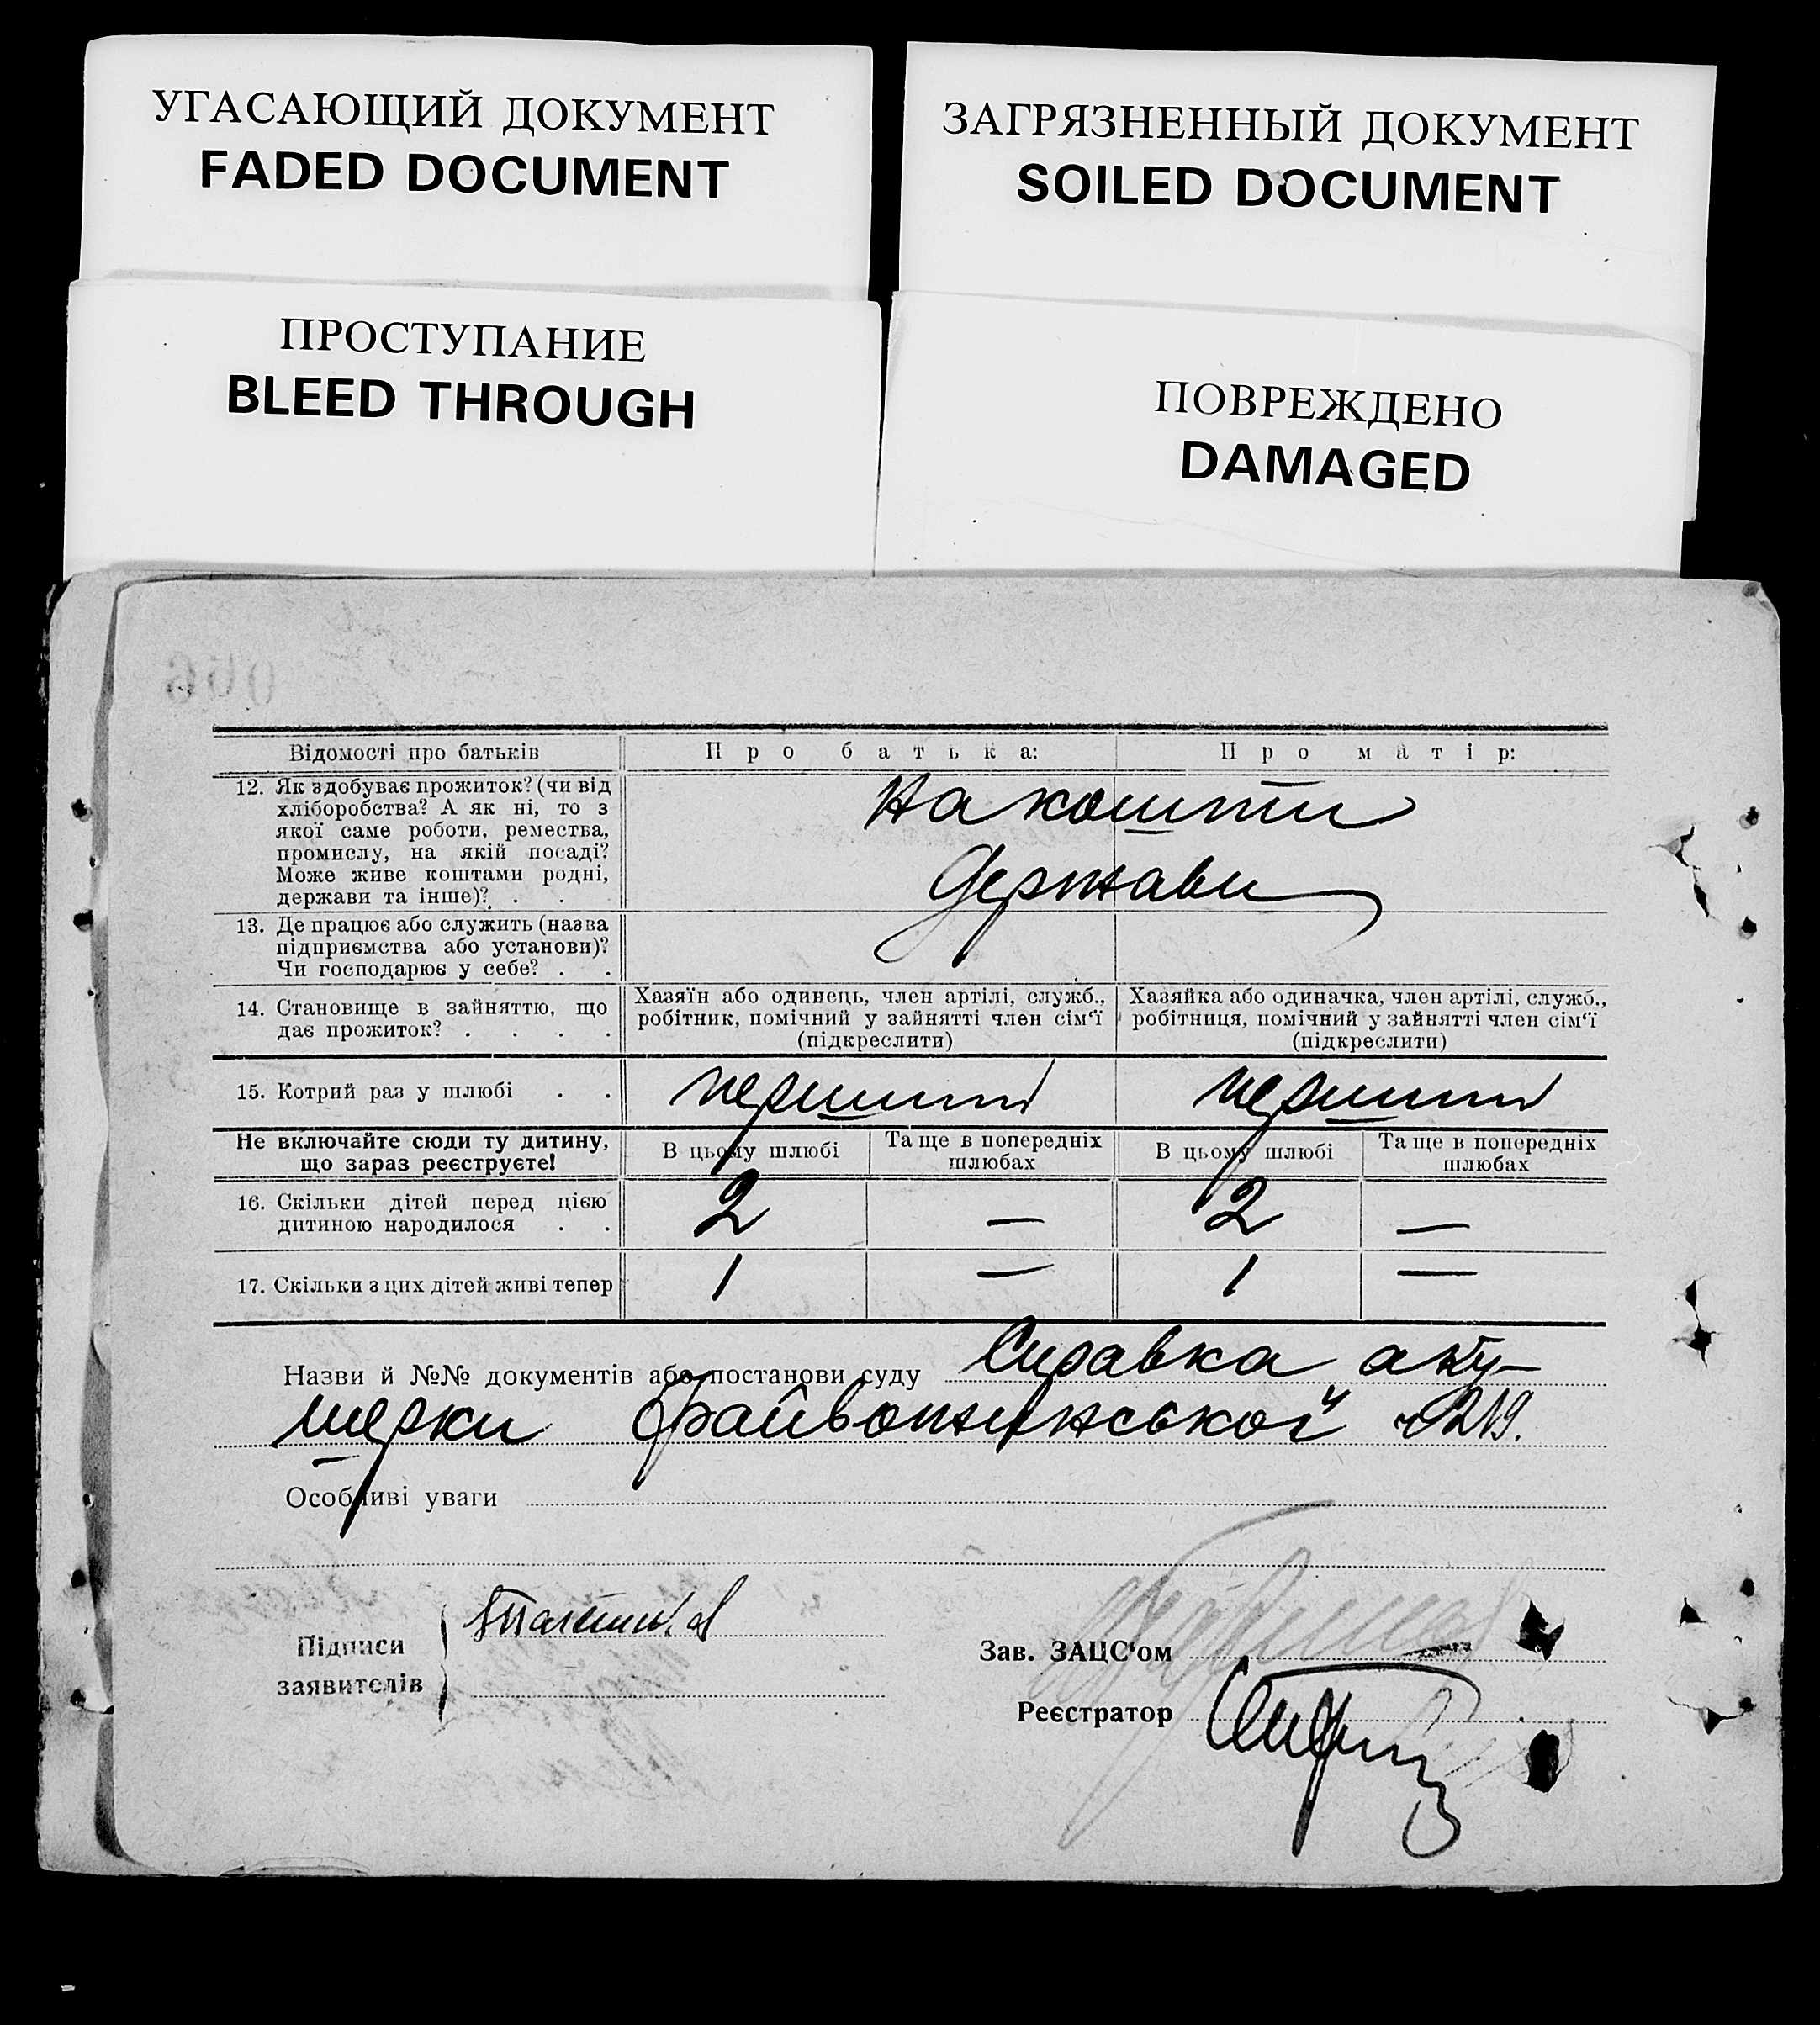 УГАСАЮЩИЙ ДОКУМЕНТ
FADED DOCUMENT
ЗАГРЯЗНЕННЫЙ ДОКУМЕНТ
SOILED DOCUMENT
ПРОСТУПАНИЕ
BLEED THROUGH
ПОВРЕЖДЕНО
DAMAGED
Відомості про батьків
Про батька:
Про матір:
12. Як здобуває прожиток? (чи від
хліборобства? А як ні, то з
якої саме роботи, ремества,
промислу, на якій посаді?
Може живе коштами родні,
держави та інше)? . .
На кошти
Держави
13. Де працює або служить (назва
підприємства або установи)?
Чи господарює у себе? . .
14. Становище в зайняттю, що
дає прожиток? . . . .
Хазяїн або одинець, член артілі, служб.,
робітник, помічний у зайнятті член сім'ї
(підкреслити)
Хазяйка або одиначка, член артілі, служб.,
робітниця, помічний у зайнятті член сім'ї
(підкреслити)
15. Котрий раз у шлюбі . .
перший
перший
Не включайте сюди ту дитину,
що зараз реєструєте!
В цьому шлюбі
Та ще в попередніх
шлюбах
В цьому шлюбі
Та ще в попередніх
шлюбах
16. Скільки дітей перед цією
дитиною народилося . .
2 — 2 —
17. Скільки з цих дітей живі тепер
1 — 1 —
Назви й №№ документів або постанови суду Справка аку-
шерки 219.
Особливі уваги
Підписи
заявителів
Зав. ЗАЦС'ом
Реєстратор